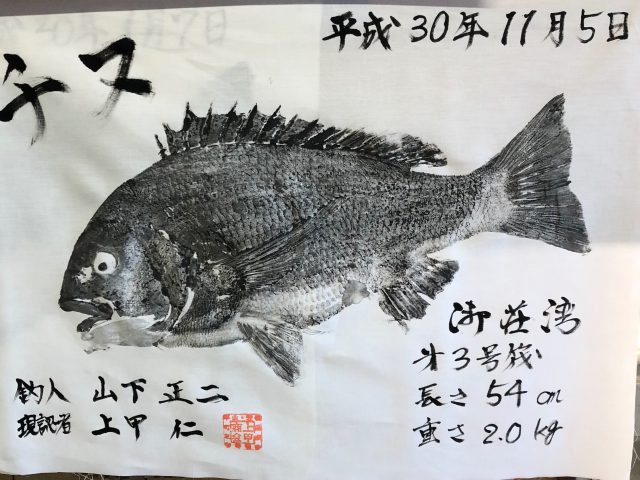 平成30年11月5日
チヌ
御荘湾
才3号筏
長さ 54 cm
重さ 2.0 kg
釣人 山下 正二
現認者 上甲 仁